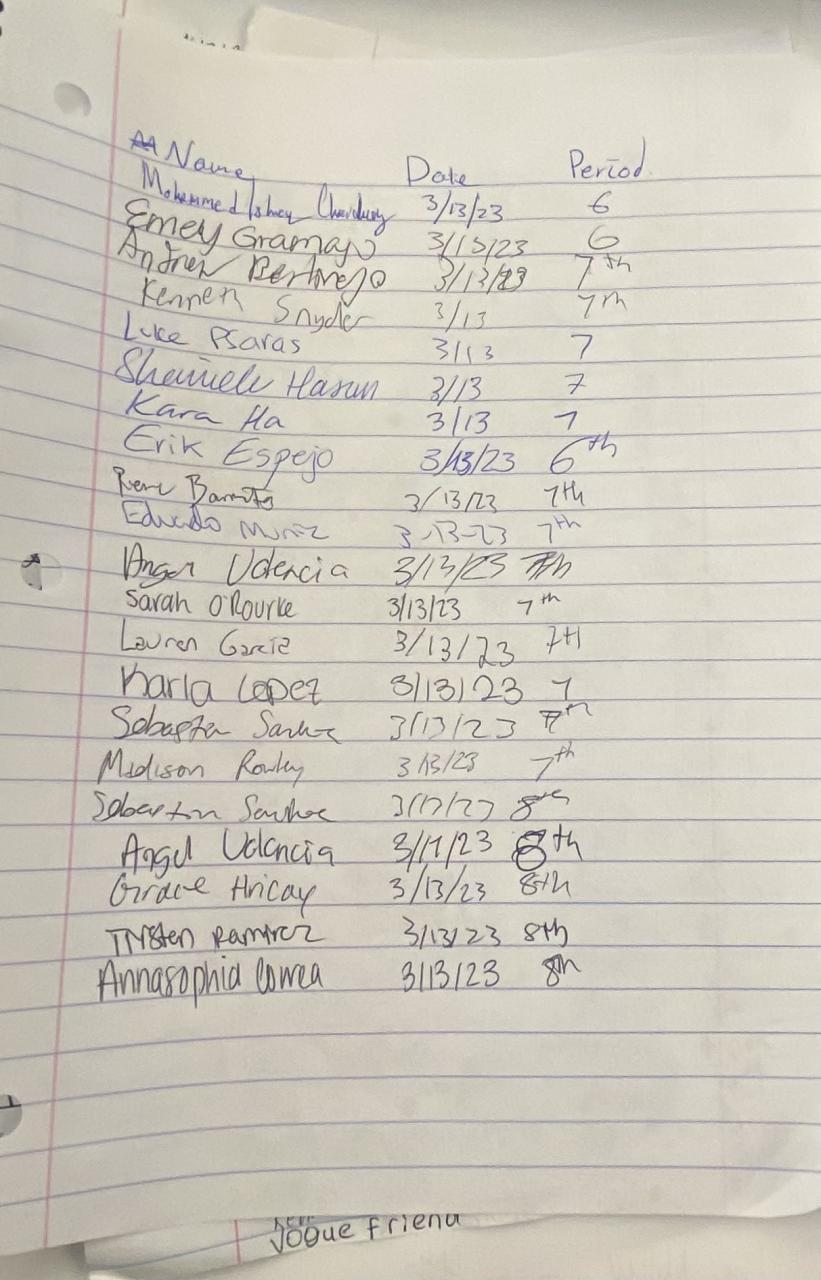 Name Date Period
Mohammed Chowdhury 3/13/23 6
Emely Gramajo 3/13/23 6
Andrew Bermejo 3/13/23 7th
Kenneth Snyder 3/13 7th
Luke Psaras 3/13 7
Hasan 3/13 7
Kara Ha 3/13 7
Erik Espejo 3/13/23 6th
Rene 3/13/23 7th
Eduardo Muniz 3-13-23 7th
Angel Valencia 3/13/23 7th
Sarah O'Rourke 3/13/23 7th
Lauren Garcia 3/13/23 7th
Karla Lopez 3/13/23 7
Sebastian Sanchez 3/13/23 7th
Madison Rowley 3/13/23 7th
Sebastian Sanchez 8th
Angel Valencia 8th
Grace Hricay 3/13/23 8th
Trysten Ramirez 3/13/23 8th
Annasophia Correa 3/13/23 8th
Vogue friend